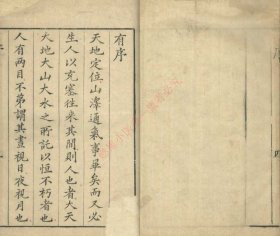 有序
天地定位山澤通氣事畢矣而又必
生人以充塞往來其間則人也者大天
大地大山大水之所託以恒不朽者也
人有兩目不第謂其晝視日夜視月也